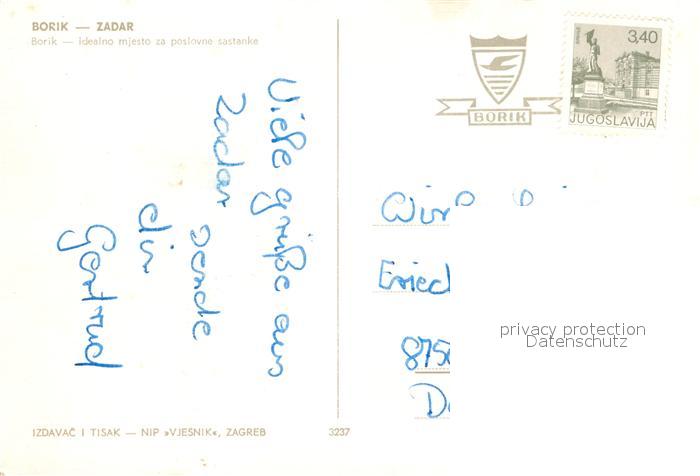 BORIK — ZADAR
Borik — idealno mjesto za poslovne sastanke
BORIK
3,40
PTT
JUGOSLAVIJA
Viele grüße aus
Zadar sende
din
Gertrud
Eried
875
D
privacy protection
Datenschutz
IZDAVAČ I TISAK — NIP »VJESNIK«, ZAGREB
3237